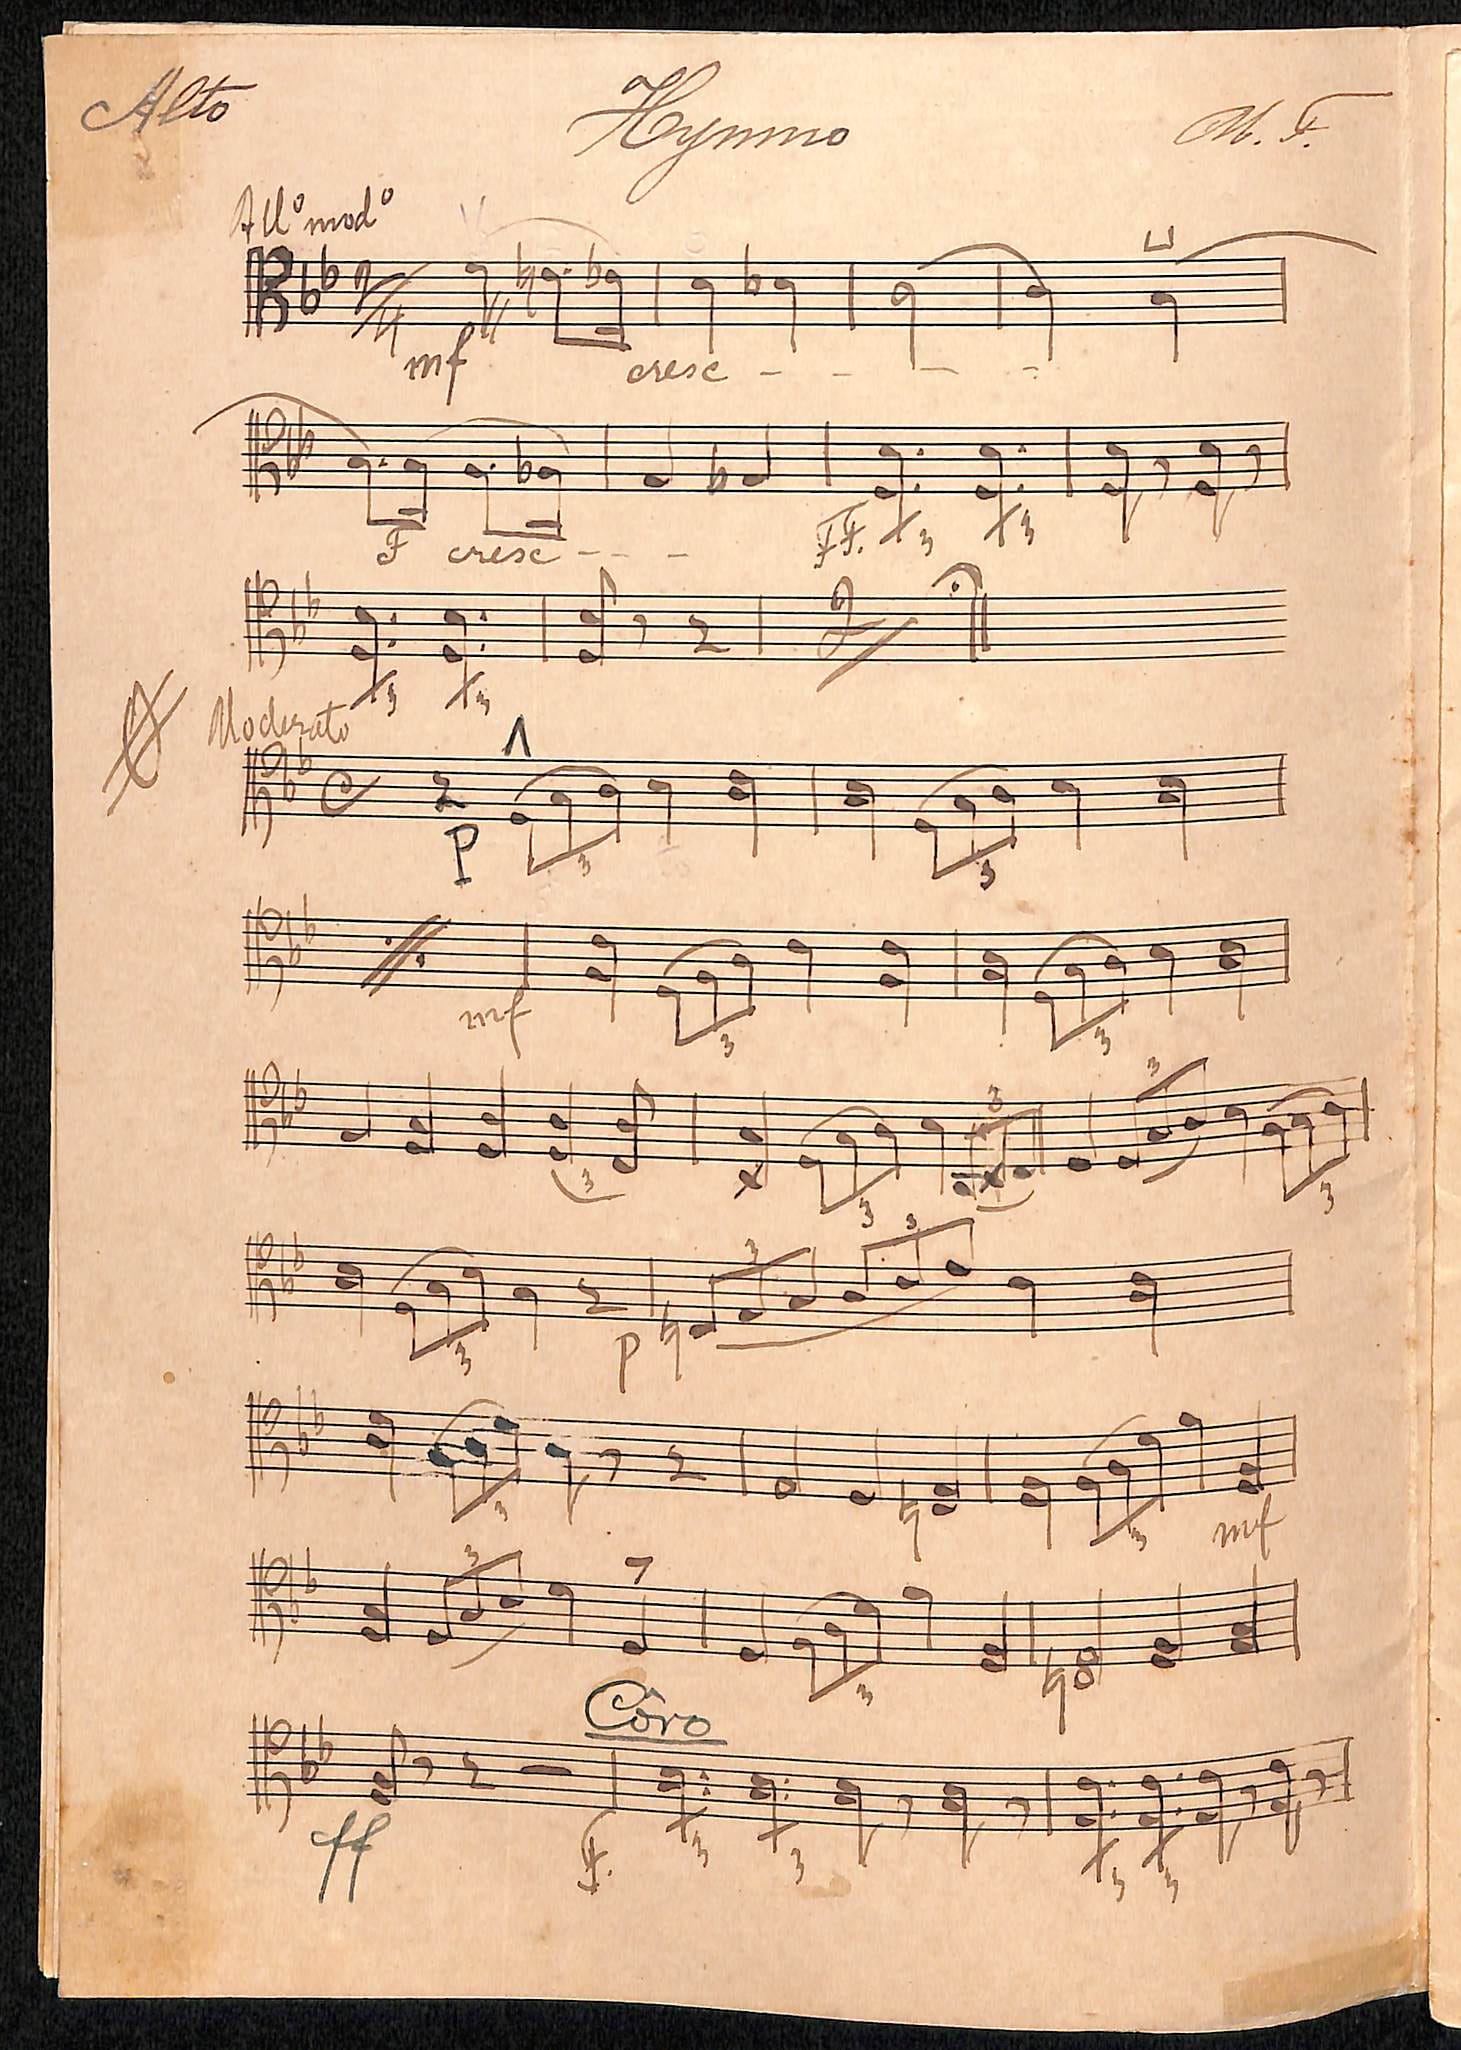 Alto Hymno M. F.
All° mod°
2/4
mf cresc
F cresc FF.
3 3
3 3
2
Moderato
C
P 3 3
mf 3 3
3 3 3 3 3
3 p 3 3
3 3 mf
3 3
Côro
ff F. 3 3 3 3